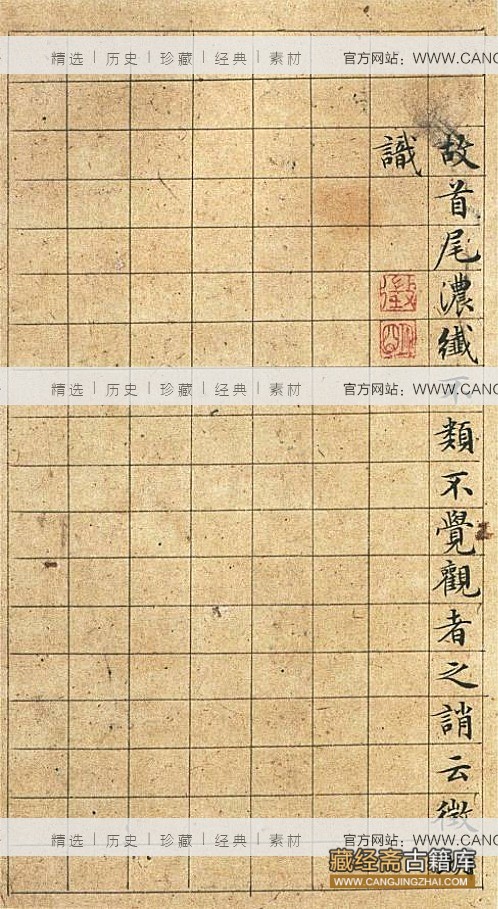 精选 | 历史 | 珍藏 | 经典 | 素材 官方网站：WWW.CAN
故首尾濃纖不類不覺觀者之誚云徵
識
徵
明
精选 | 历史 | 珍藏 | 经典 | 素材 官方网站：WWW.CAN
精选 | 历史 | 珍藏 | 经典 | 素材 官方网站：WWW.CAN
藏经斋古籍库
WWW.CANGJINGZHAI.COM